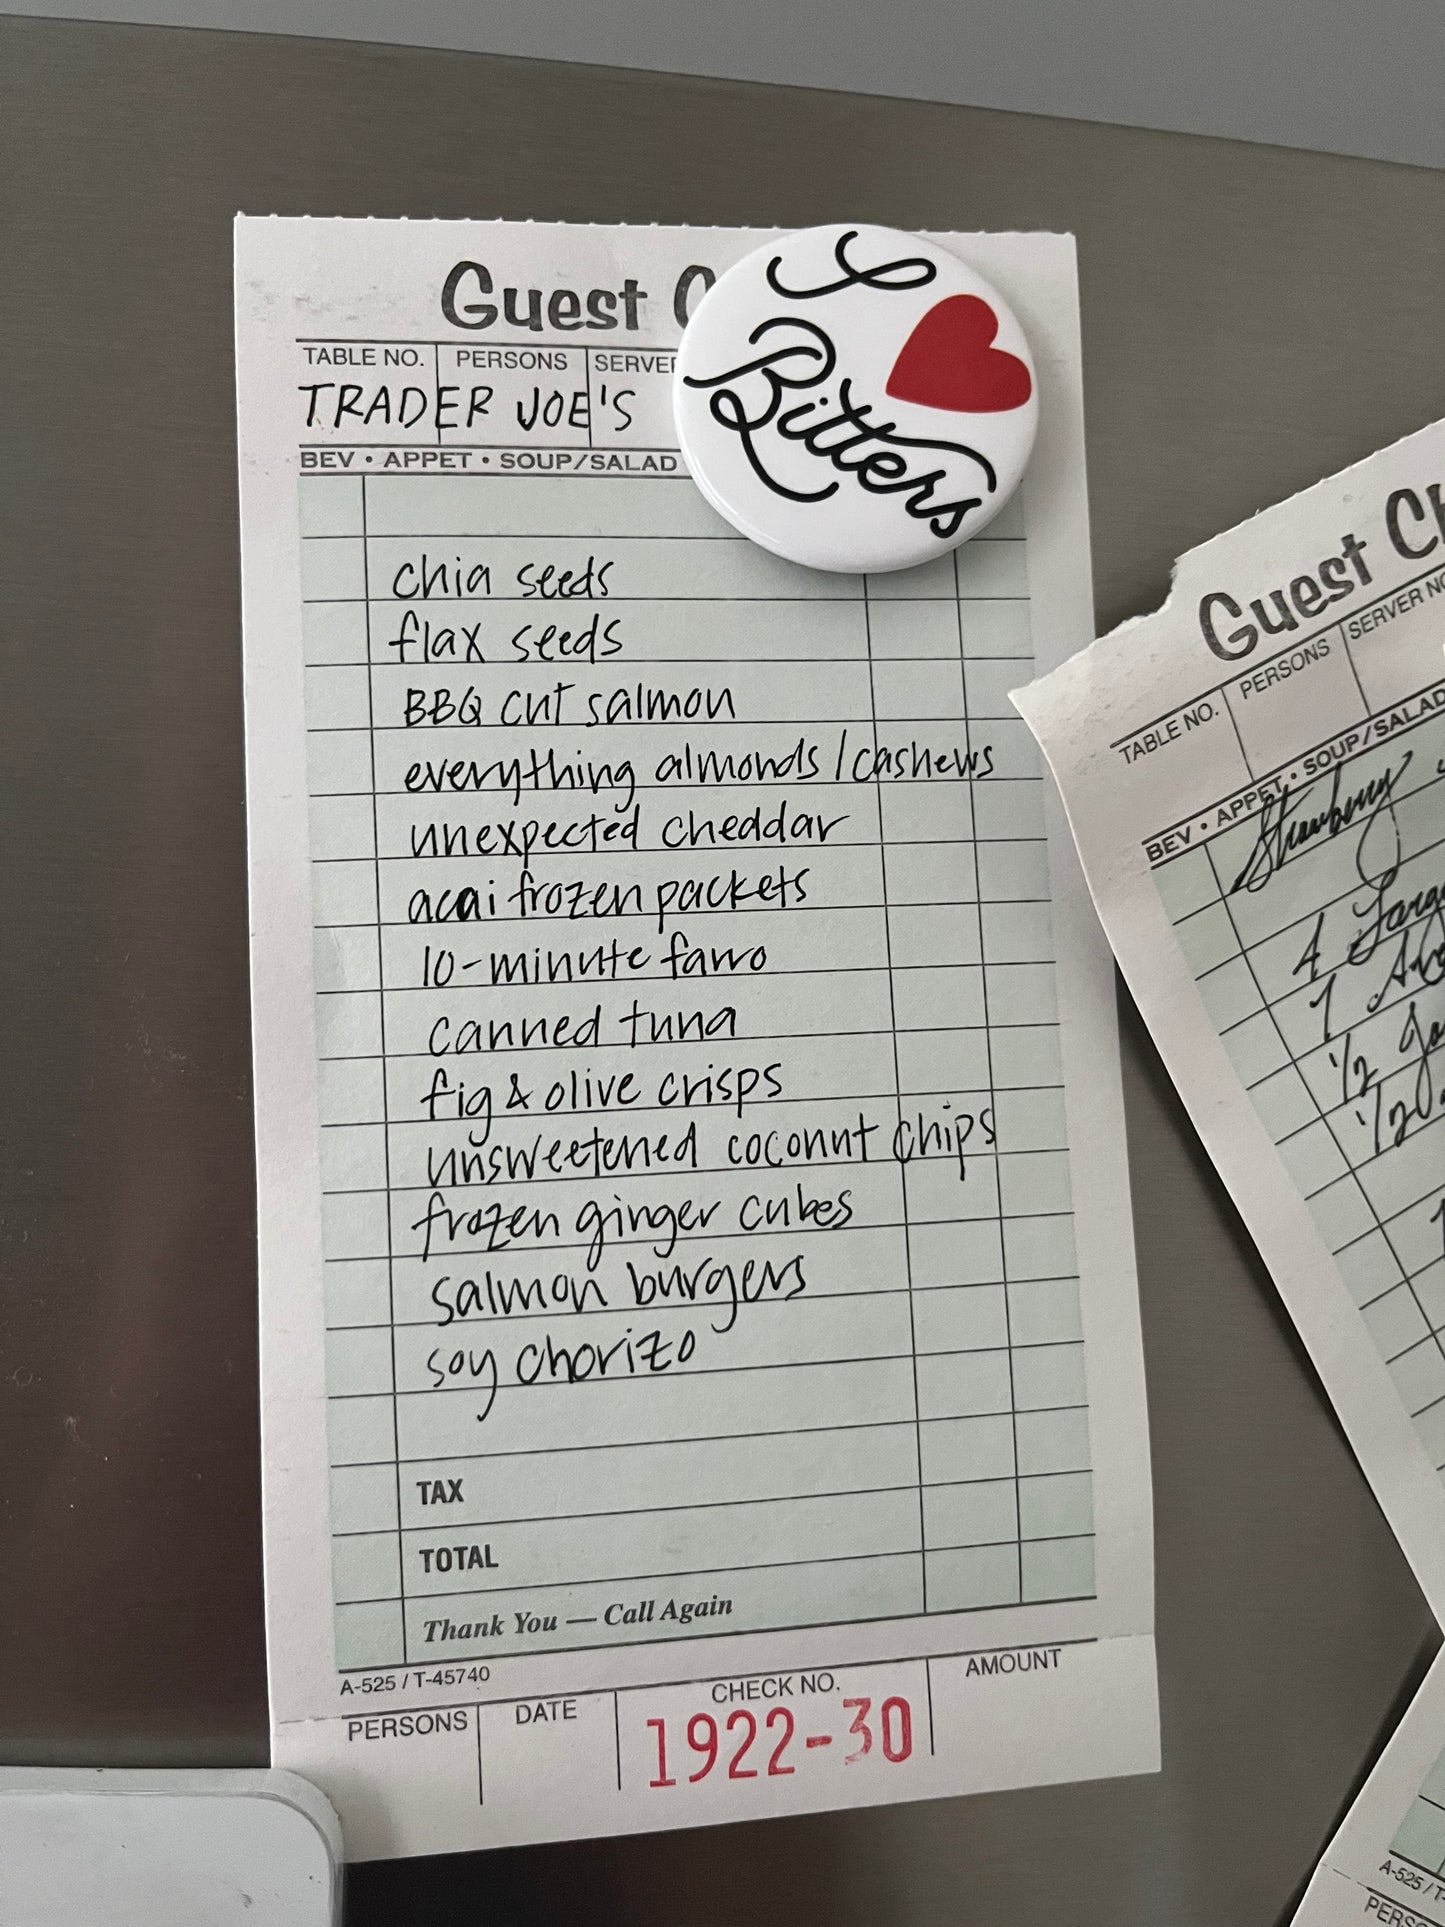 Guest
TABLE NO. PERSONS
TRADER JOE'S
BEV • APPET • SOUP/SALAD
I
Bitters
chia seeds
flax seeds
BBQ cut salmon
everything almonds / cashews
unexpected cheddar
acai frozen packets
10-minute farro
canned tuna
fig & olive crisps
unsweetened coconut chips
frozen ginger cubes
salmon burgers
soy chorizo
TAX
TOTAL
Thank You — Call Again
A-525 / T-45740
PERSONS DATE CHECK NO. AMOUNT
1922-30
Guest
TABLE NO. PERSONS SERVER
BEV • APPET • SOUP/SALAD
Strawberry
4
1/2
1/2
A-525 / T-